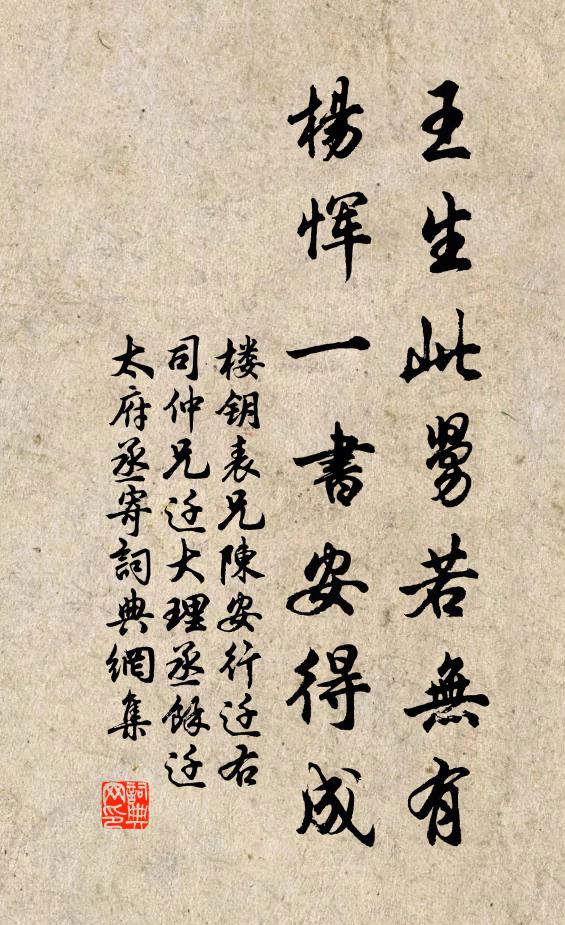 王生此舅若無有
楊恽一書安得成
楼钥表兄陳安行迁右
司仲兄迁大理丞餘迁
太府丞寄詞典網集
詞典
网印